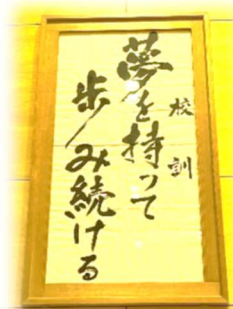 校訓
夢を持って
歩み続ける